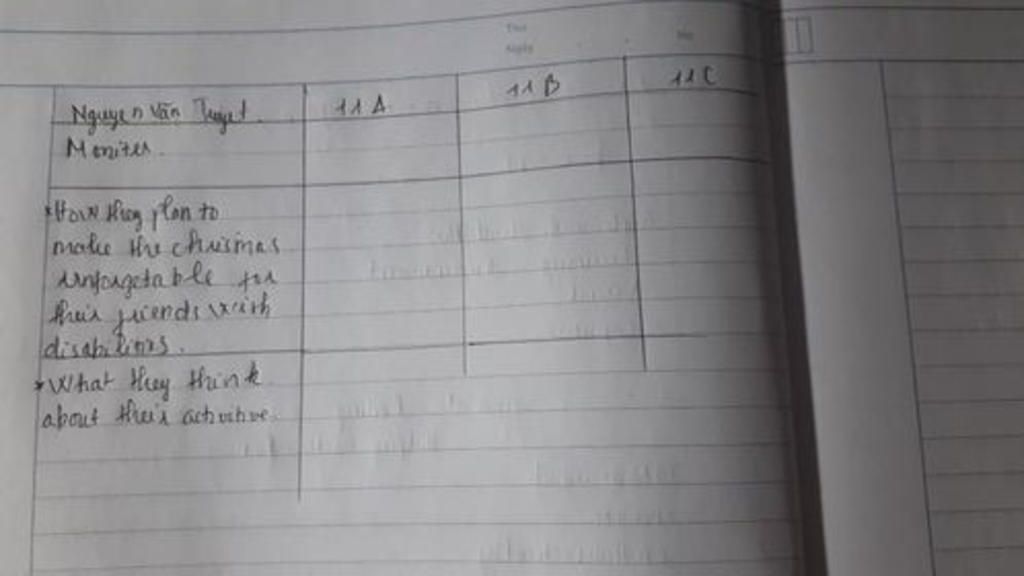 Thứ
Ngày
No
Nguyen Văn Tuyet.
11A
11B
11C
Moniter
*How they plan to
make the chrismas
unforgetable for
their friends with
disabilities.
*What they think
about their activitive.